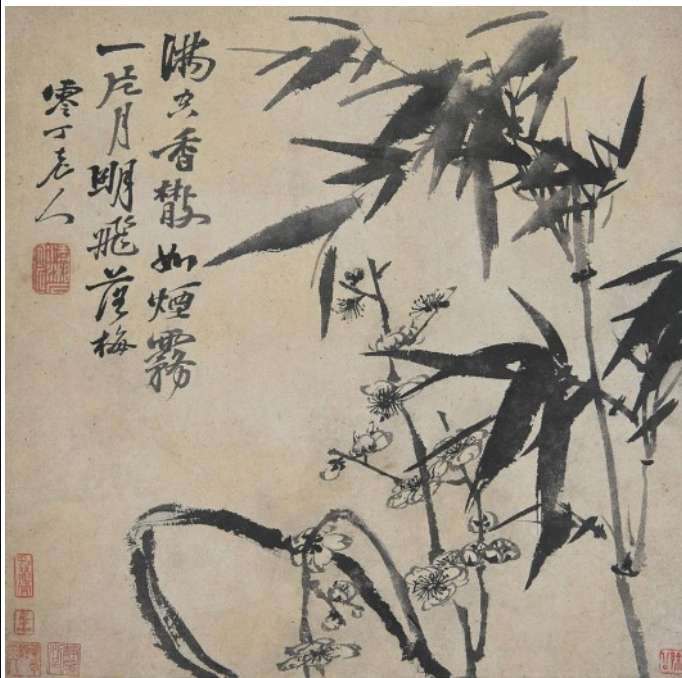 满空香散如煙霧
一片月明飛落梅
零丁老人